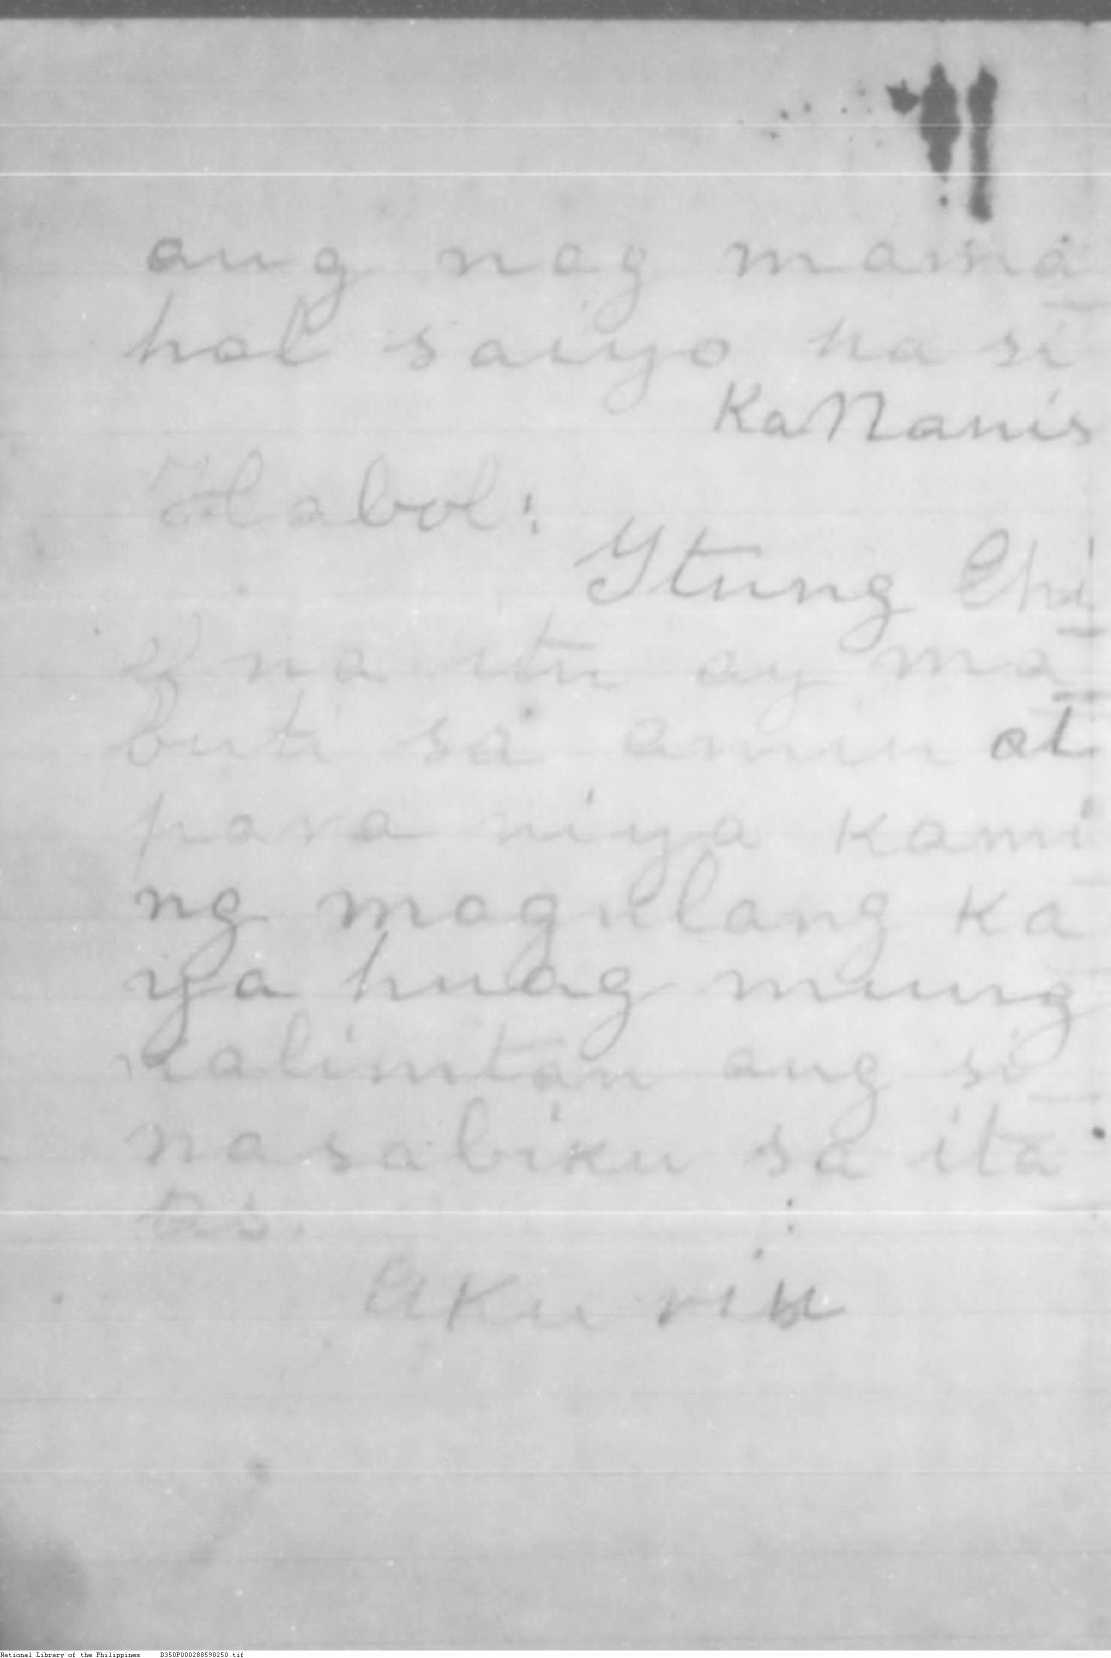 ang nag mama
hal saiyo na si
KaNanis
Habol:
Ytung Chi
na itu ay ma
buti sa amin at
para niya kami
ng magulang ka
ya huag muung
kalimtan ang si
nasabiku sa ita
as.
Aku rin
National Library of the Philippines D350P000288598250.tif